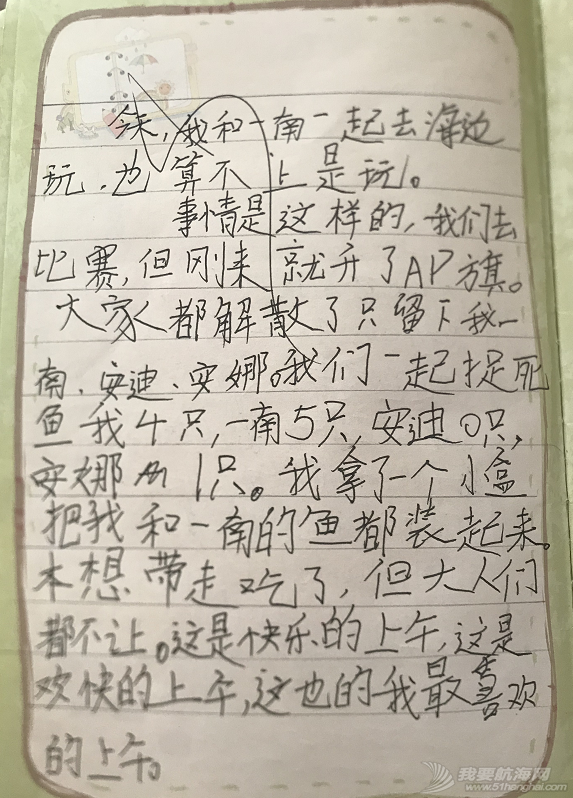 今天,我和一南一起去海边
玩,也算不上是玩。
事情是这样的,我们去
比赛,但刚来就升了AP旗。
大家都解散了只留下我一
南、安迪、安娜。我们一起捉死
鱼我4只,一南5只,安迪0只,
安娜1只。我拿了一个小盒
把我和一南的鱼都装起来。
本想带走吃了,但大人们
都不让。这是快乐的上午,这是
欢快的上午,这也的我最喜欢
的上午。
我要航海网
www.51hanghai.com